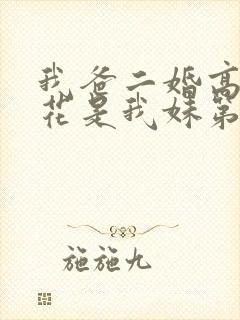 我爸二婚高
花是我妹第
施施九